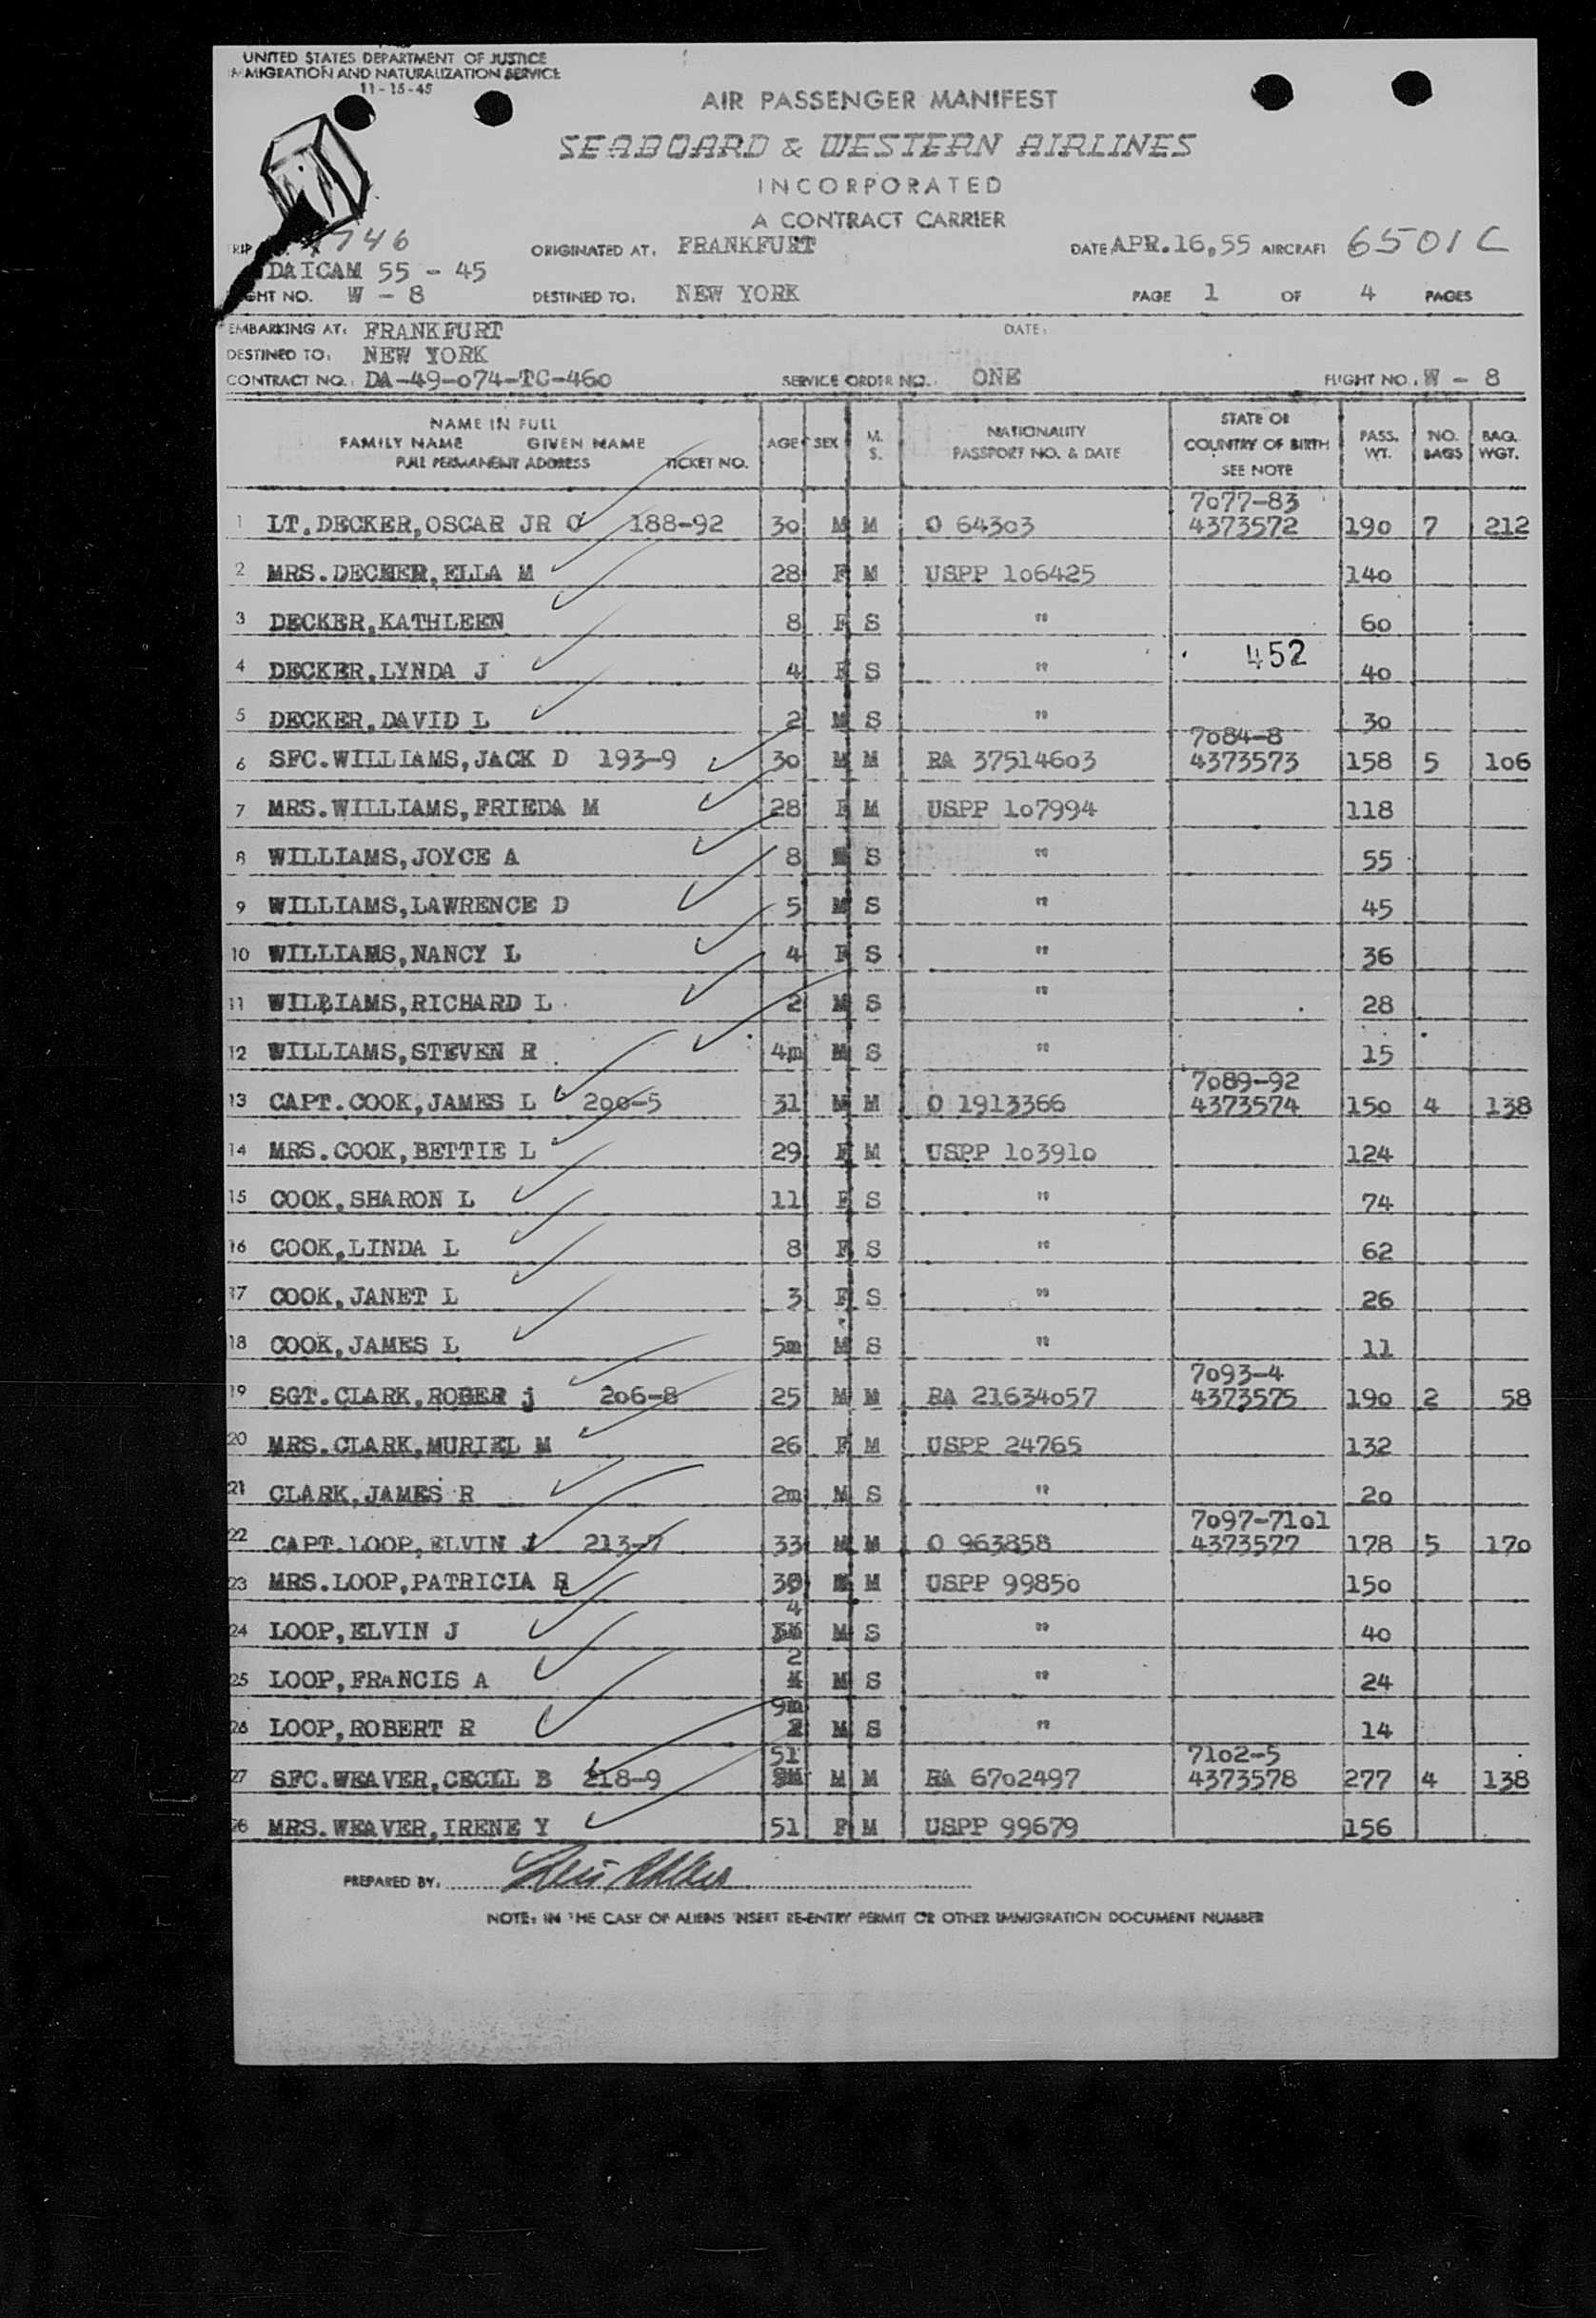 UNITED STATES DEPARTMENT OF JUSTICE
IMMIGRATION AND NATURALIZATION SERVICE
11-15-45
AIR PASSENGER MANIFEST
SEABOARD & WESTERN AIRLINES
INCORPORATED
A CONTRACT CARRIER
TRIP 746 ORIGINATED AT: FRANKFURT DATE APR.16,55 AIRCRAFT 6501C
DAICAM 55 - 45
FLIGHT NO. W - 8 DESTINED TO: NEW YORK PAGE 1 OF 4 PAGES
EMBARKING AT: FRANKFURT DATE:
DESTINED TO: NEW YORK
CONTRACT NO.: DA-49-074-TC-460 SERVICE ORDER NO.: ONE FLIGHT NO.: W - 8
NAME IN FULL
FAMILY NAME GIVEN NAME
FULL PERMANENT ADDRESS TICKET NO.
AGE SEX M. S. NATIONALITY PASSPORT NO. & DATE STATE OF COUNTRY OF BIRTH SEE NOTE PASS. WT. NO. BAGS BAG. WGT.
7077-83
1 LT.DECKER,OSCAR JR O 188-92 30 M M O 64303 4373572 190 7 212
2 MRS.DECKER,ELLA M 28 F M USPP 106425 140
3 DECKER,KATHLEEN 8 F S " 60
452
4 DECKER,LYNDA J 4 F S " 40
5 DECKER,DAVID L 2 M S " 30
7084-8
6 SFC.WILLIAMS,JACK D 193-9 30 M M RA 37514603 4373573 158 5 106
7 MRS.WILLIAMS,FRIEDA M 28 F M USPP 107994 118
8 WILLIAMS,JOYCE A 8 S " 55
9 WILLIAMS,LAWRENCE D 5 M S " 45
10 WILLIAMS,NANCY L 4 F S " 36
11 WILLIAMS,RICHARD L 2 M S " 28
12 WILLIAMS,STEVEN R 4m M S " 15
7089-92
13 CAPT.COOK,JAMES L 200-5 31 M M O 1913366 4373574 150 4 138
14 MRS.COOK,BETTIE L 29 F M USPP 103910 124
15 COOK,SHARON L 11 F S " 74
16 COOK,LINDA L 8 F S " 62
17 COOK,JANET L 3 F S " 26
18 COOK,JAMES L 5m M S " 11
7093-4
19 SGT.CLARK,ROGER j 206-8 25 M M RA 21634057 4373575 190 2 58
20 MRS.CLARK,MURIEL M 26 F M USPP 24765 132
21 CLARK,JAMES R 2m M S " 20
7097-7101
22 CAPT.LOOP,ELVIN J 213-7 33 M M O 963858 4373577 178 5 170
23 MRS.LOOP,PATRICIA R M USPP 99850 150
24 LOOP,ELVIN J 4 M S " 40
25 LOOP,FRANCIS A 2 M S " 24
26 LOOP,ROBERT R 9m M S " 14
7102-5
27 SFC.WEAVER,CECIL B 218-9 51 M M RA 6702497 4373578 277 4 138
28 MRS.WEAVER,IRENE Y 51 F M USPP 99679 156
PREPARED BY:
NOTE: IN THE CASE OF ALIENS INSERT RE-ENTRY PERMIT OR OTHER IMMIGRATION DOCUMENT NUMBER